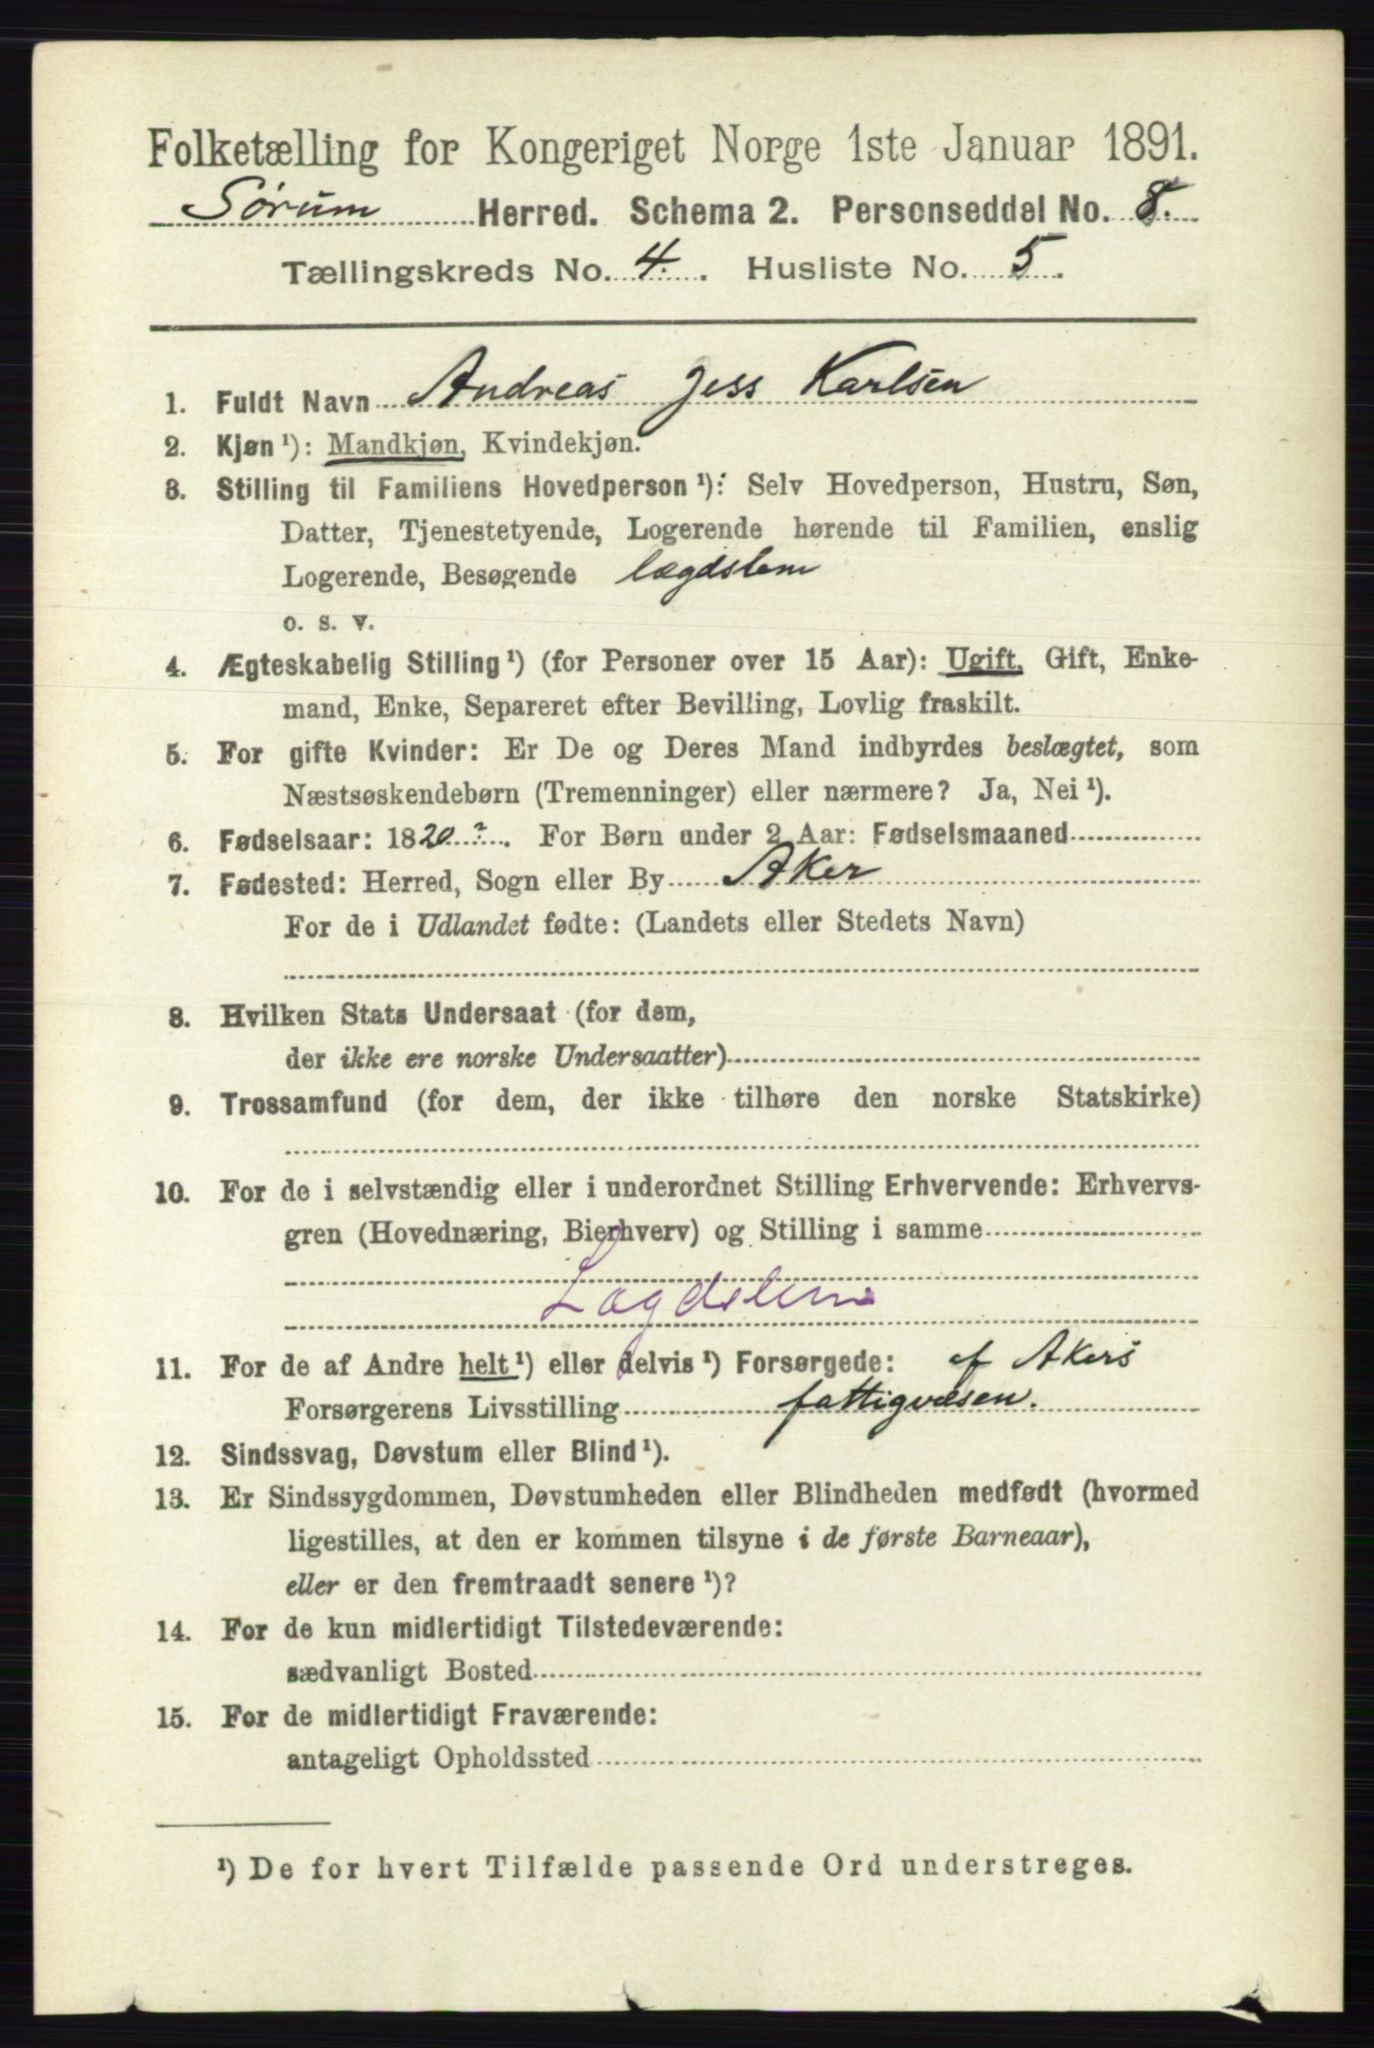 Folketælling for Kongeriget Norge 1ste Januar 1891.
Sørum Herred. Schema 2. Personseddel No. 8.
Tællingskreds No. 4. Husliste No. 5.
1. Fuldt Navn Andreas Jess Karlsen
2. Kjøn ¹): Mandkjøn, Kvindekjøn.
3. Stilling til Familiens Hovedperson ¹): Selv Hovedperson, Hustru, Søn,
Datter, Tjenestetyende, Logerende hørende til Familien, enslig
Logerende, Besøgende lægdslem
o. s. v.
4. Ægteskabelig Stilling ¹) (for Personer over 15 Aar): Ugift, Gift, Enke-
mand, Enke, Separeret efter Bevilling, Lovlig fraskilt.
5. For gifte Kvinder: Er De og Deres Mand indbyrdes beslægtet, som
Næstsøskendebørn (Tremenninger) eller nærmere? Ja, Nei ¹).
6. Fødselsaar: 1820 ?. For Børn under 2 Aar: Fødselsmaaned
7. Fødested: Herred, Sogn eller By Aker
For de i Udlandet fødte: (Landets eller Stedets Navn)
8. Hvilken Stats Undersaat (for dem,
der ikke ere norske Undersaatter)
9. Trossamfund (for dem, der ikke tilhøre den norske Statskirke)
10. For de i selvstændig eller i underordnet Stilling Erhvervende: Erhvervs-
gren (Hovednæring, Bierhverv) og Stilling i samme
Lægdslem
11. For de af Andre helt ¹) eller delvis ¹) Forsørgede: af Akers
Forsørgerens Livsstilling fattigvæsen.
12. Sindssvag, Døvstum eller Blind ¹).
13. Er Sindssygdommen, Døvstumheden eller Blindheden medfødt (hvormed
ligestilles, at den er kommen tilsyne i de første Barneaar),
eller er den fremtraadt senere ¹)?
14. For de kun midlertidigt Tilstedeværende:
sædvanligt Bosted
15. For de midlertidigt Fraværende:
antageligt Opholdssted
¹) De for hvert Tilfælde passende Ord understreges.